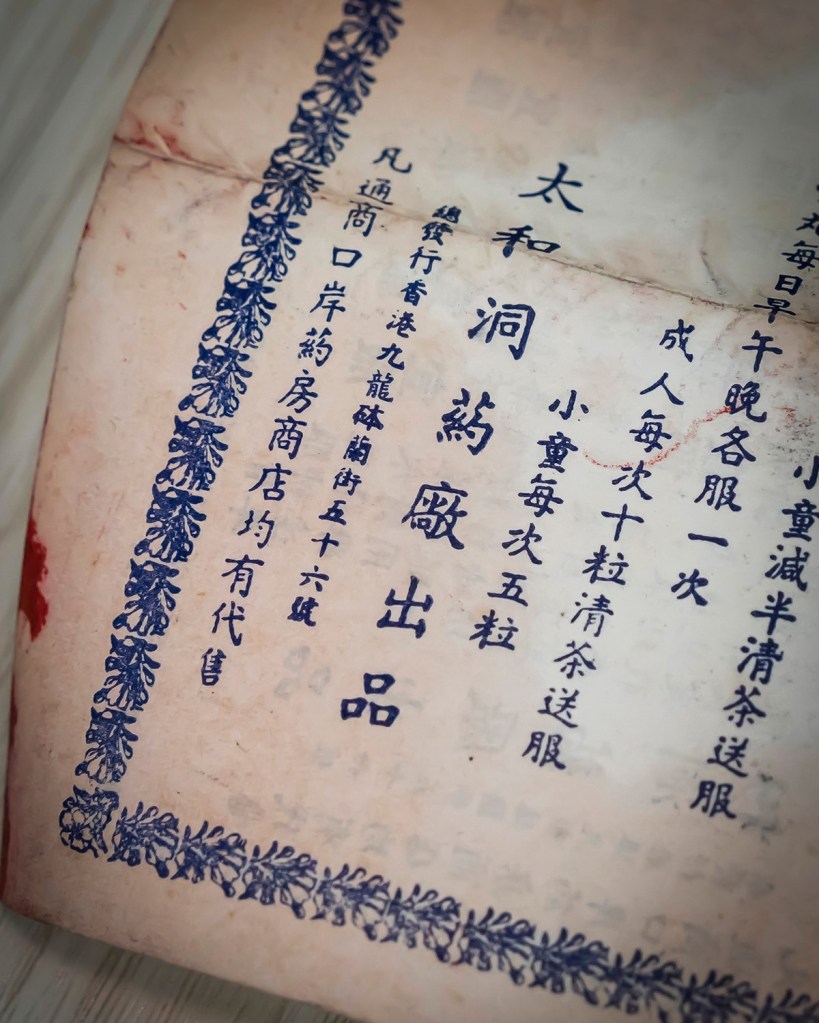 小童減半清茶送服
丸每日早午晚各服一次
成人每次十粒清茶送服
小童每次五粒
太和洞葯廠出品
總發行香港九龍砵蘭街五十六號
凡通商口岸葯房商店均有代售